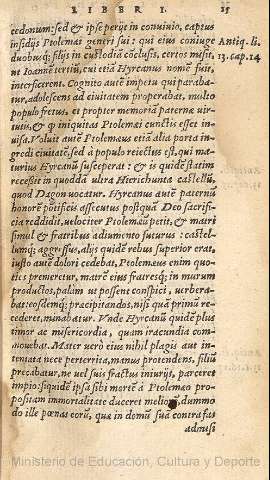 LIBER I. 25
cedonum: sed & ipse perijt in conuiuio, captus
insidijs Ptolemæi generi sui: qui eius coniuge
duobusq́; filijs in custodia cōclusis, certos misit,
Antiq. li.
13. cap. 14
ut Ioannē tertiū, cui etiā Hyrcanus nomē fuit,
interficerent. Cognito autē impetu qui paraba-
tur, adolescens ad ciuitatem properabat, multo
populo fretus, et propter memoriā paternæ uir-
tutis, & q́ iniquitas Ptolemæi cunctis esset in-
uisa. Voluit autē Ptolemæus etiā alia porta in-
gredi ciuitatē, sed à populo reiectus est, qui ma-
turius Hyrcanū susceperat: & is quidē statim
recessit in quodda ultra Hierichunta castellū,
quod Dagon uocatur. Hyrcanus autē paternū
honorē pōtificis assecutus postquā Deo sacrifi-
cia reddidit, uelociter Ptolemæū petit, & matri
simul & fratribus adiumento futurus: castel-
lumq́; aggressus, alijs quidē rebus superior erat,
iusto autē dolori cedebat, Ptolemæus enim quo-
ties premeretur, matrē eius fratresq́; in murum
productos, palam ut possent conspici, uerbera-
bat: eosdemq́; præcipitandos, nisi quā primū re-
cederet, minabatur. Vnde Hyrcanū quidē plus
timor ac misericordia, quam iracundia com-
mouebat. Mater uerò eius nihil plagis aut in-
tentata nece perterrita, manus protendens, filiū
precabatur, ne uel suis fractus iniurijs, parceret
impio: siquidē ipsa sibi mortē à Ptolemæo pro-
positam immortalitate duceret meliorē, dummo
do ille pœnas eorū, quæ in domū suā contra fas
admisi
Ministerio de Educación, Cultura y Deporte